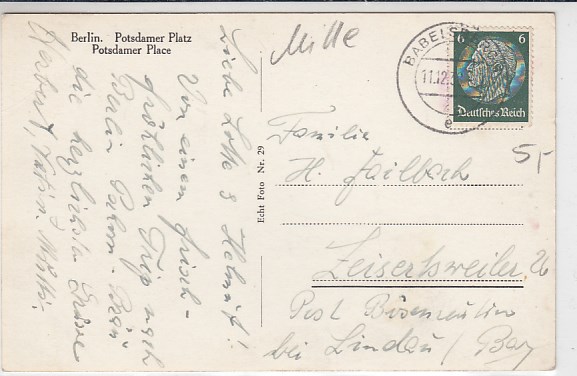 Berlin. Potsdamer Platz
Potsdamer Place
Liebe Lotte & Helmut!
Von einem frisch-
fröhlichen Trip nach
Berlin
die herzlichsten Grüsse
Herbert,
Echt Foto Nr. 29
Mitte
BABELSB
11.12.3
6 6
Deutsches Reich
5,-
Familie
H. Failbach
Zeisertsweiler 26
Post Bösenreutin
bei Lindau / Bay